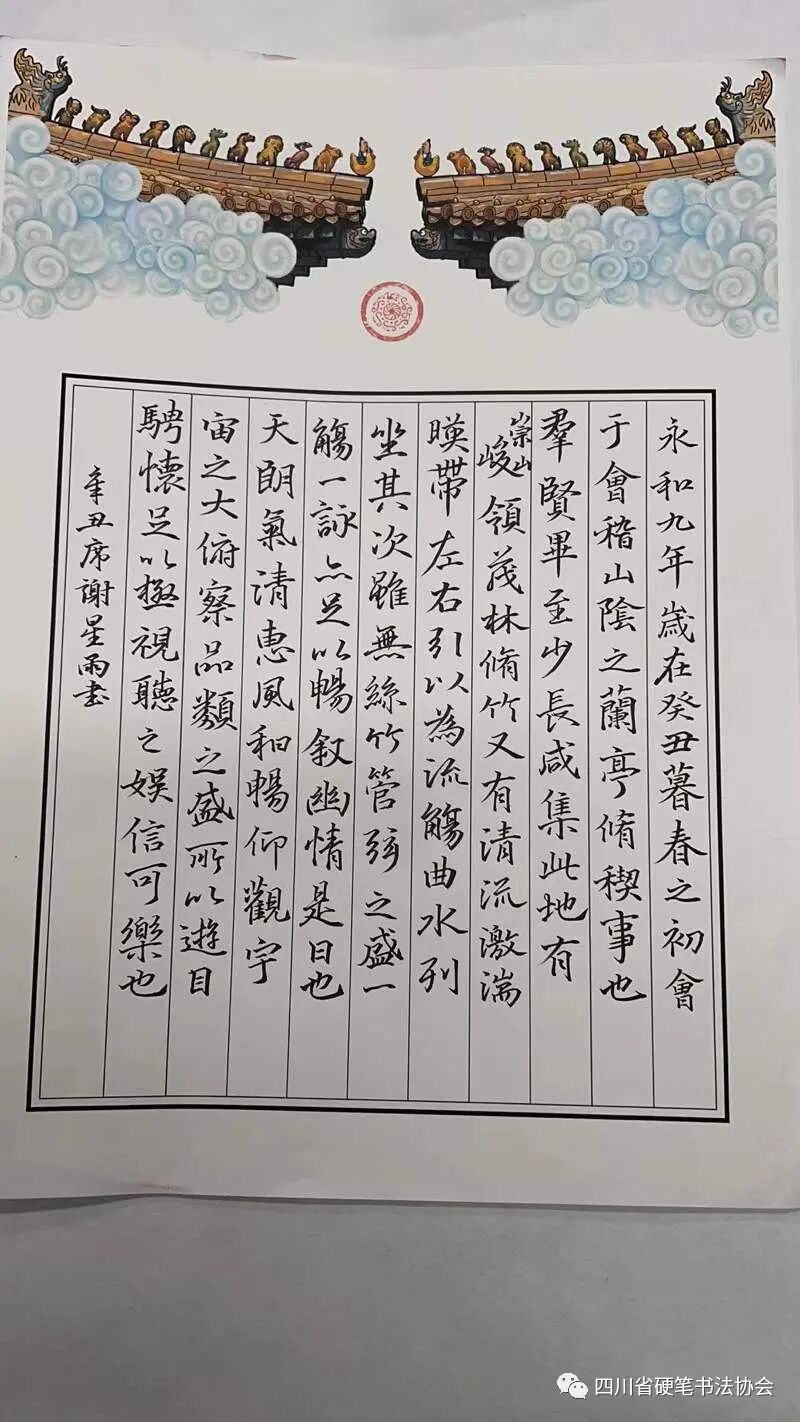 永和九年歲在癸丑暮春之初會
于會稽山陰之蘭亭脩稧事也
羣賢畢至少長咸集此地有
崇山峻領茂林脩竹又有清流激湍
暎帶左右引以為流觴曲水列
坐其次雖無絲竹管弦之盛一
觴一詠亦足以暢敘幽情是日也
天朗氣清惠風和暢仰觀宇
宙之大俯察品類之盛所以遊目
騁懷足以極視聽之娛信可樂也
辛丑席謝星雨书
四川省硬笔书法协会